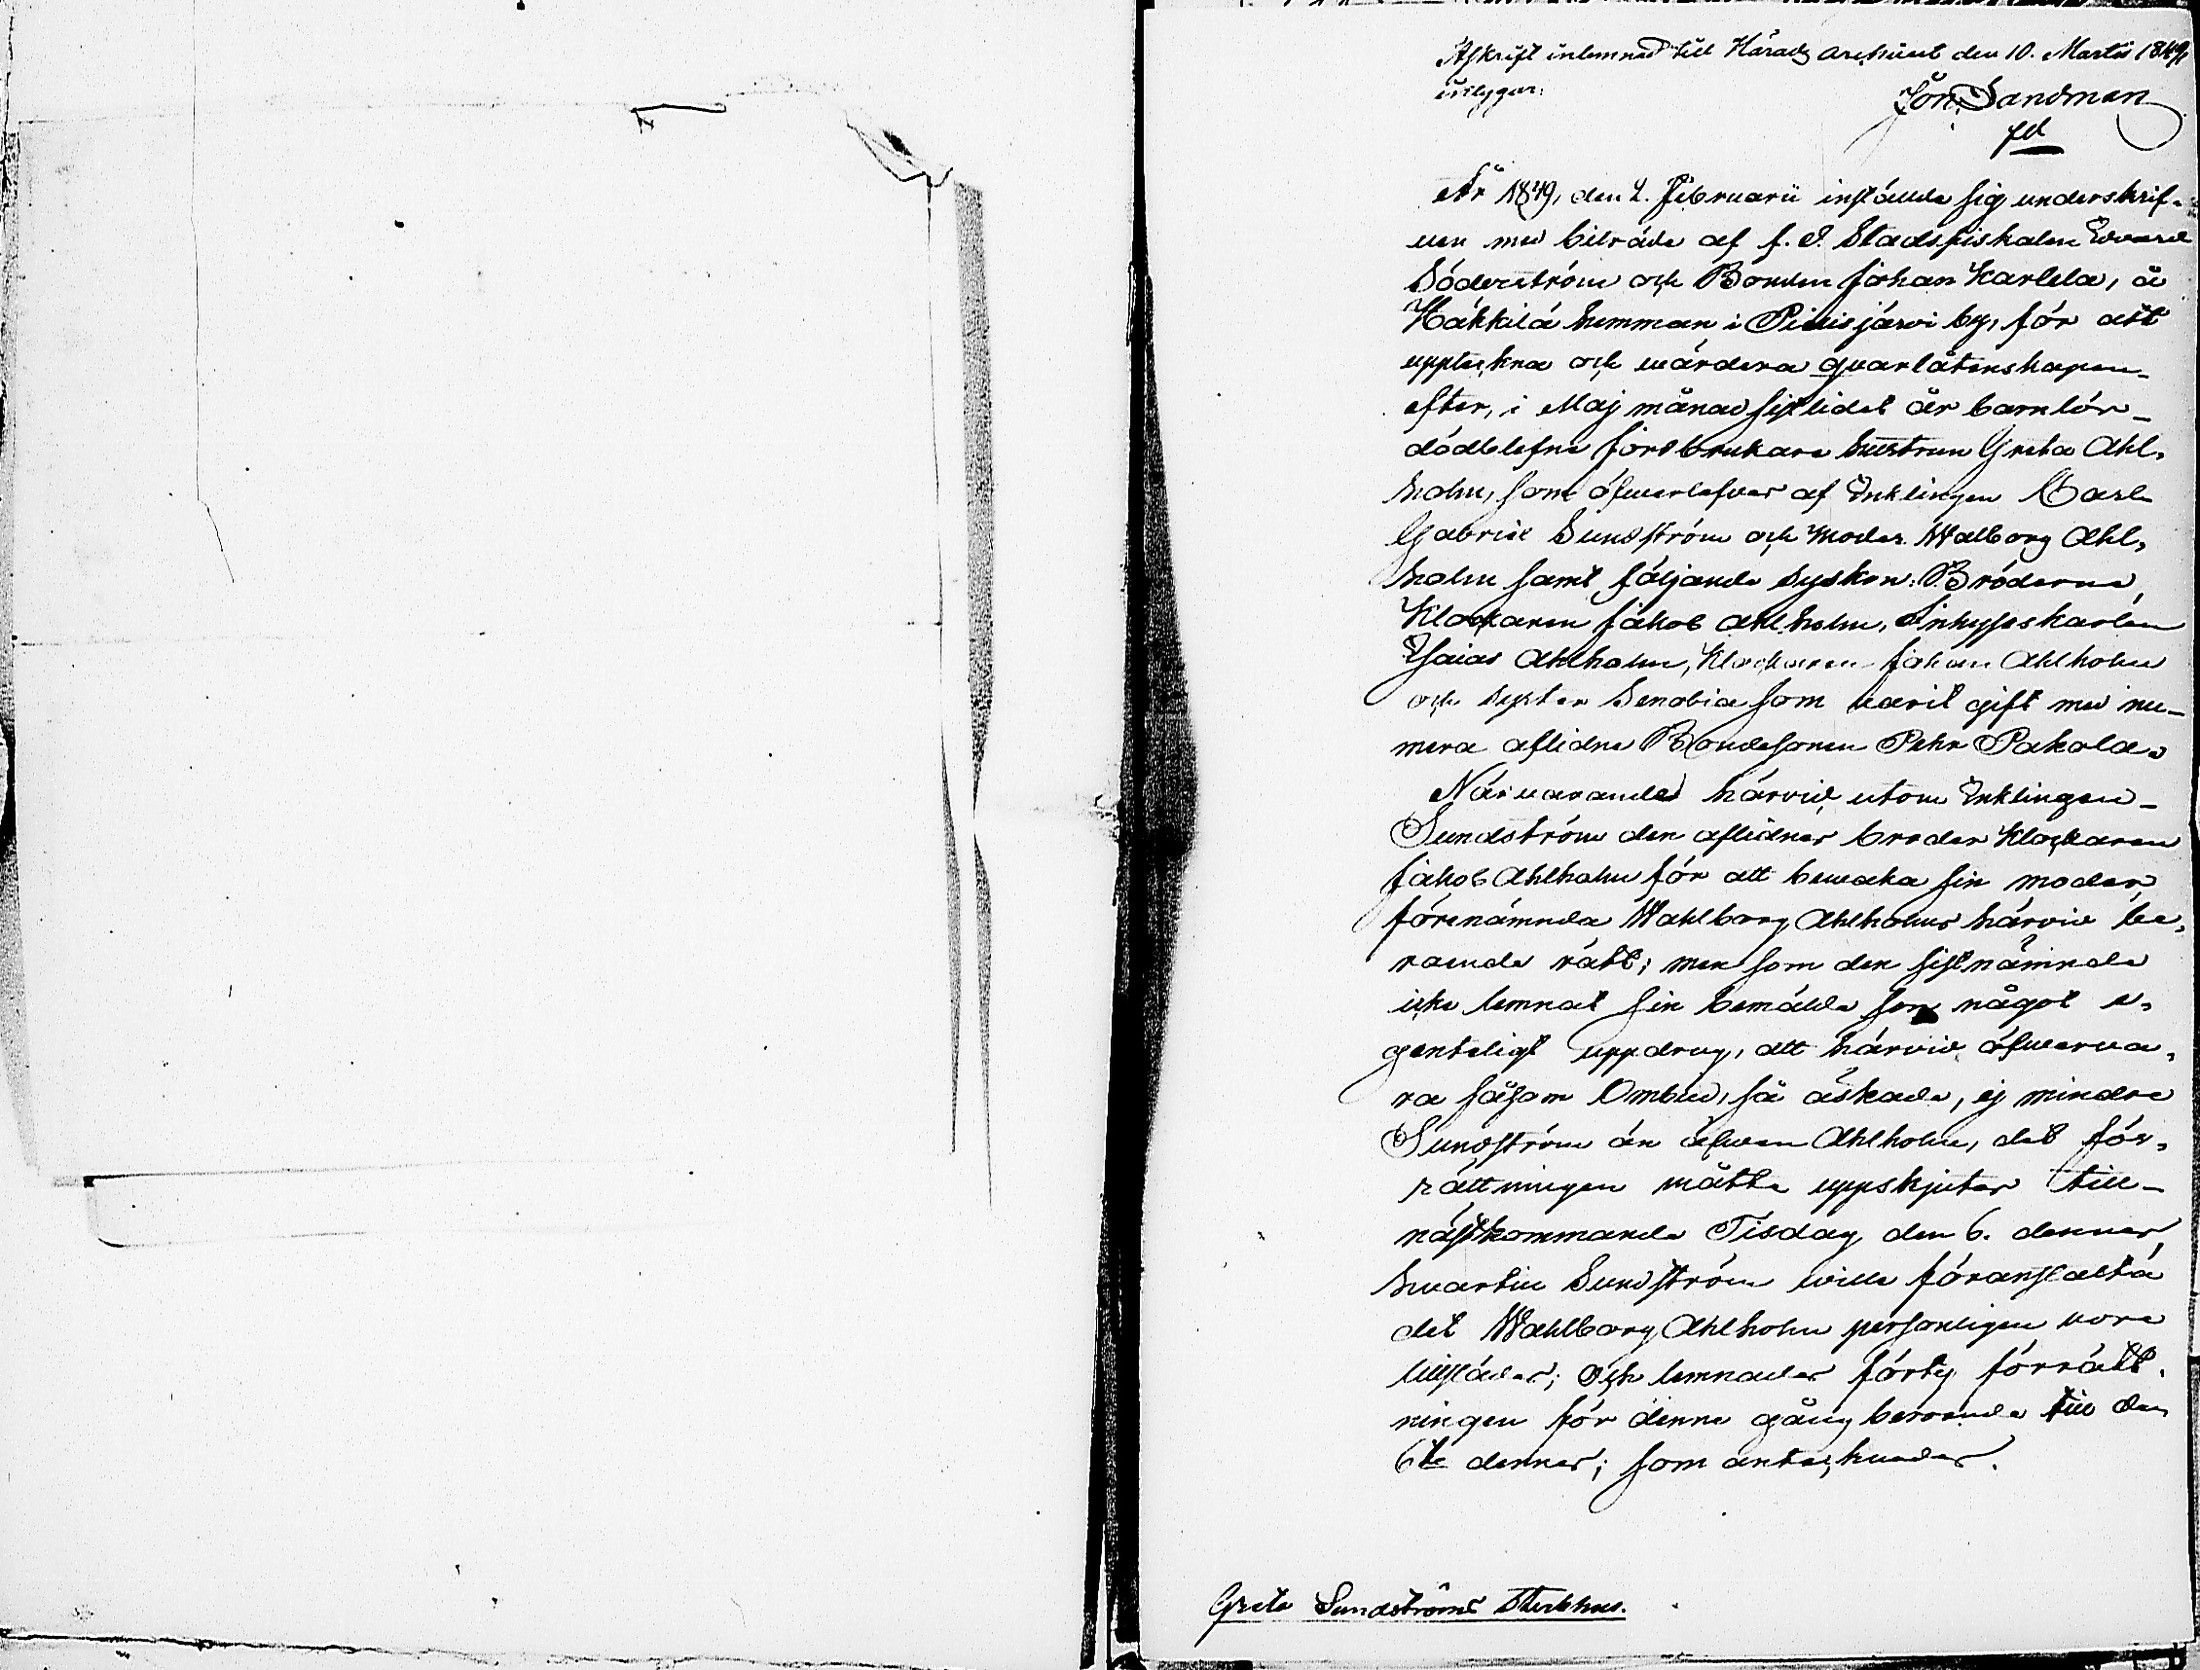 Afskrift inlemnad till Härads archivet den 10. Martii 1849,
intygar:
Jön. Sandman
fd
År 1849, den 2. Februarii inställde sig underskrif-
ven med biträde af f. d. Stadsfiskalen Edvard
Söderström och Bonden Johan Karlela, å
Häkkilä hemman i Pitkisjärvi by, för att
uppteckna och värdera qvarlåtenskapen
efter, i Maj månad sistlidet år barnlös
dödblefne jordbrukare hustrun Greta Ahl-
holm, som öfwerlefves af Enklingen Carl
Gabriel Sundström och Moder Walborg Ahl-
holm samt följande syskon: Bröderne,
Klockaren Jakob Ahlholm, Inhyseskarlen
Esaias Ahlholm, Klockaren Johan Ahlholm
och syster Senobia som varit gift med nu-
mera aflidne Bondesonen Pehr Pakola.
Närvarandes härvid utom Enklingen
Sundström den aflidnes broder Klockaren
Jakob Ahlholm för att bewaka sin moder
förenämnda Wahlborg Ahlholms härvid be-
roende rätt; men som den sistnämnde
icke lemnat sin bemälde son något e-
genteligt uppdrag, att härvid öfwerva-
ra såsom Ombud, så äskade, ej mindre
Sundström än äfwen Ahlholm, det för-
rättningen måtte uppskjutas till
nästkommande Tisdag den 6. dennes,
hvartill Sundström wille föranstalta
det Wahlborg Ahlholm personligen vore
tillstädes; och lemnades förty förrätt-
ningen för denne gång beroende till den
6te dennes; som antecknades.
Greta Sundströms Sterbhus.